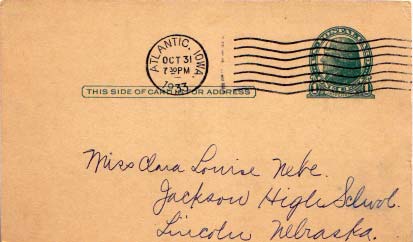 ATLANTIC, IOWA
OCT 31
7 30 PM
1933
THIS SIDE OF CARD FOR ADDRESS
Miss Clara Louise Nebe.
Jackson High School.
Lincoln Nebraska.